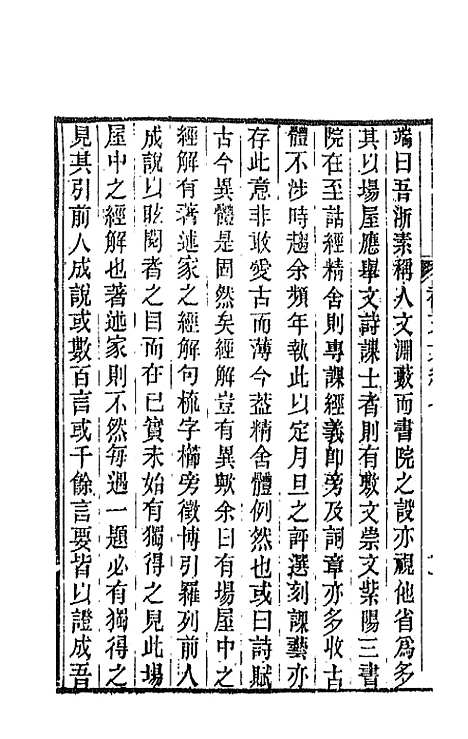 端曰吾浙素稱人文淵藪而書院之設亦視他省爲多
其以場屋應舉文詩課士者則有敷文崇文紫陽三書
院在至詁經精舍則專課經義卽旁及詞章亦多收古
體不涉時趨余頻年執此以定月旦之評選刻課藝亦
存此意非敢愛古而薄今葢精舍體例然也或曰詩賦
古今異體是固然矣經解豈有異歟余曰有場屋中之
經解有著述家之經解句梳字櫛旁徵博引羅列前人
成說以眩閱者之目而在已實未始有獨得之見此場
屋中之經解也著述家則不然每遇一題必有獨得之
見其引前人成說或數百言或千餘言要皆以證成吾